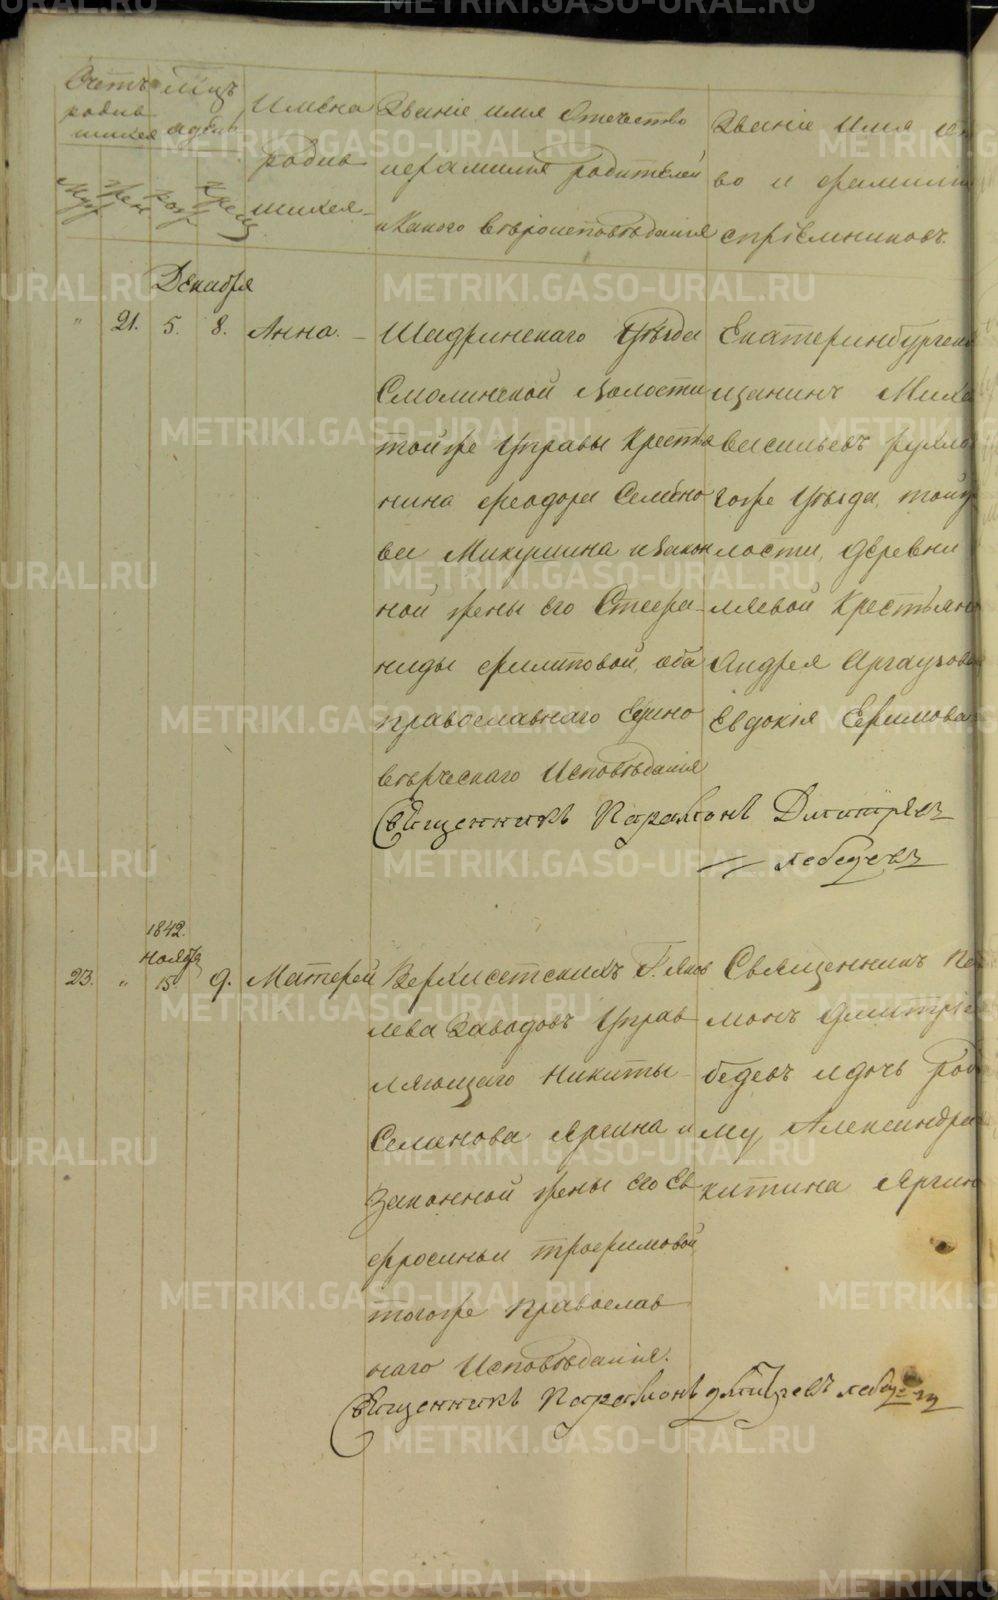 Счетъ
родив
шихся
Муж.
Жен.
Мцъ
и день
рожд.
Крещ.
Имена
родив
шихся
Званіе имя Отечество
и фамилія родителей
и Какого вѣроисповѣданія
Званіе Имя
во и фамилія
спріемниковъ
Декабря
" 21. 5. 8. Анна.
Шадринскаго Уѣзда
Смолинской Волости
тойже Управы Крестья
нина Феодора Семено
ва Микушина и Закон
ной жены его Стефа
ниды Филиповой, оба
православнаго Едино
вѣрческаго Исповѣданія
Екатеринбургск
щанинъ Миха
Васильевъ
гоже Уѣзда, тойж
лости, деревни
ляевой Крестьян
Андрея
Евдокія Ефимова
Священникъ Парамонъ Дмитріевъ
Лебедевъ
1842.
Ноября
23. " 15 9. Матфей
Верхисетскихъ Г. Яков
лева Заводовъ Управ
ляющаго Никиты
Семенова Яргина и
Законной жены его Ев
фросиньи Трофимовой
тогоже Православ
наго Исповѣданія.
Священникъ Па
монъ Дмитріе
бедевъ и дочь род
му, Александра
китина Яргин
Священникъ Парамонъ Дмитріевъ Лебедевъ
METRIKI.GASO-URAL.RU